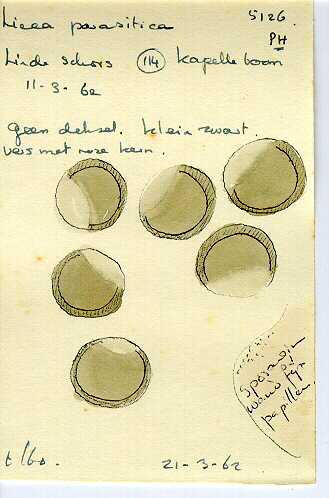 Licea parasitica
5126.
PH
Linde schors (114) Kapelle boom
11-3-62
geen deksel. klein zwart.
vers met roze kern.
Sporewijn
papillen.
Elbo.
21-3-62